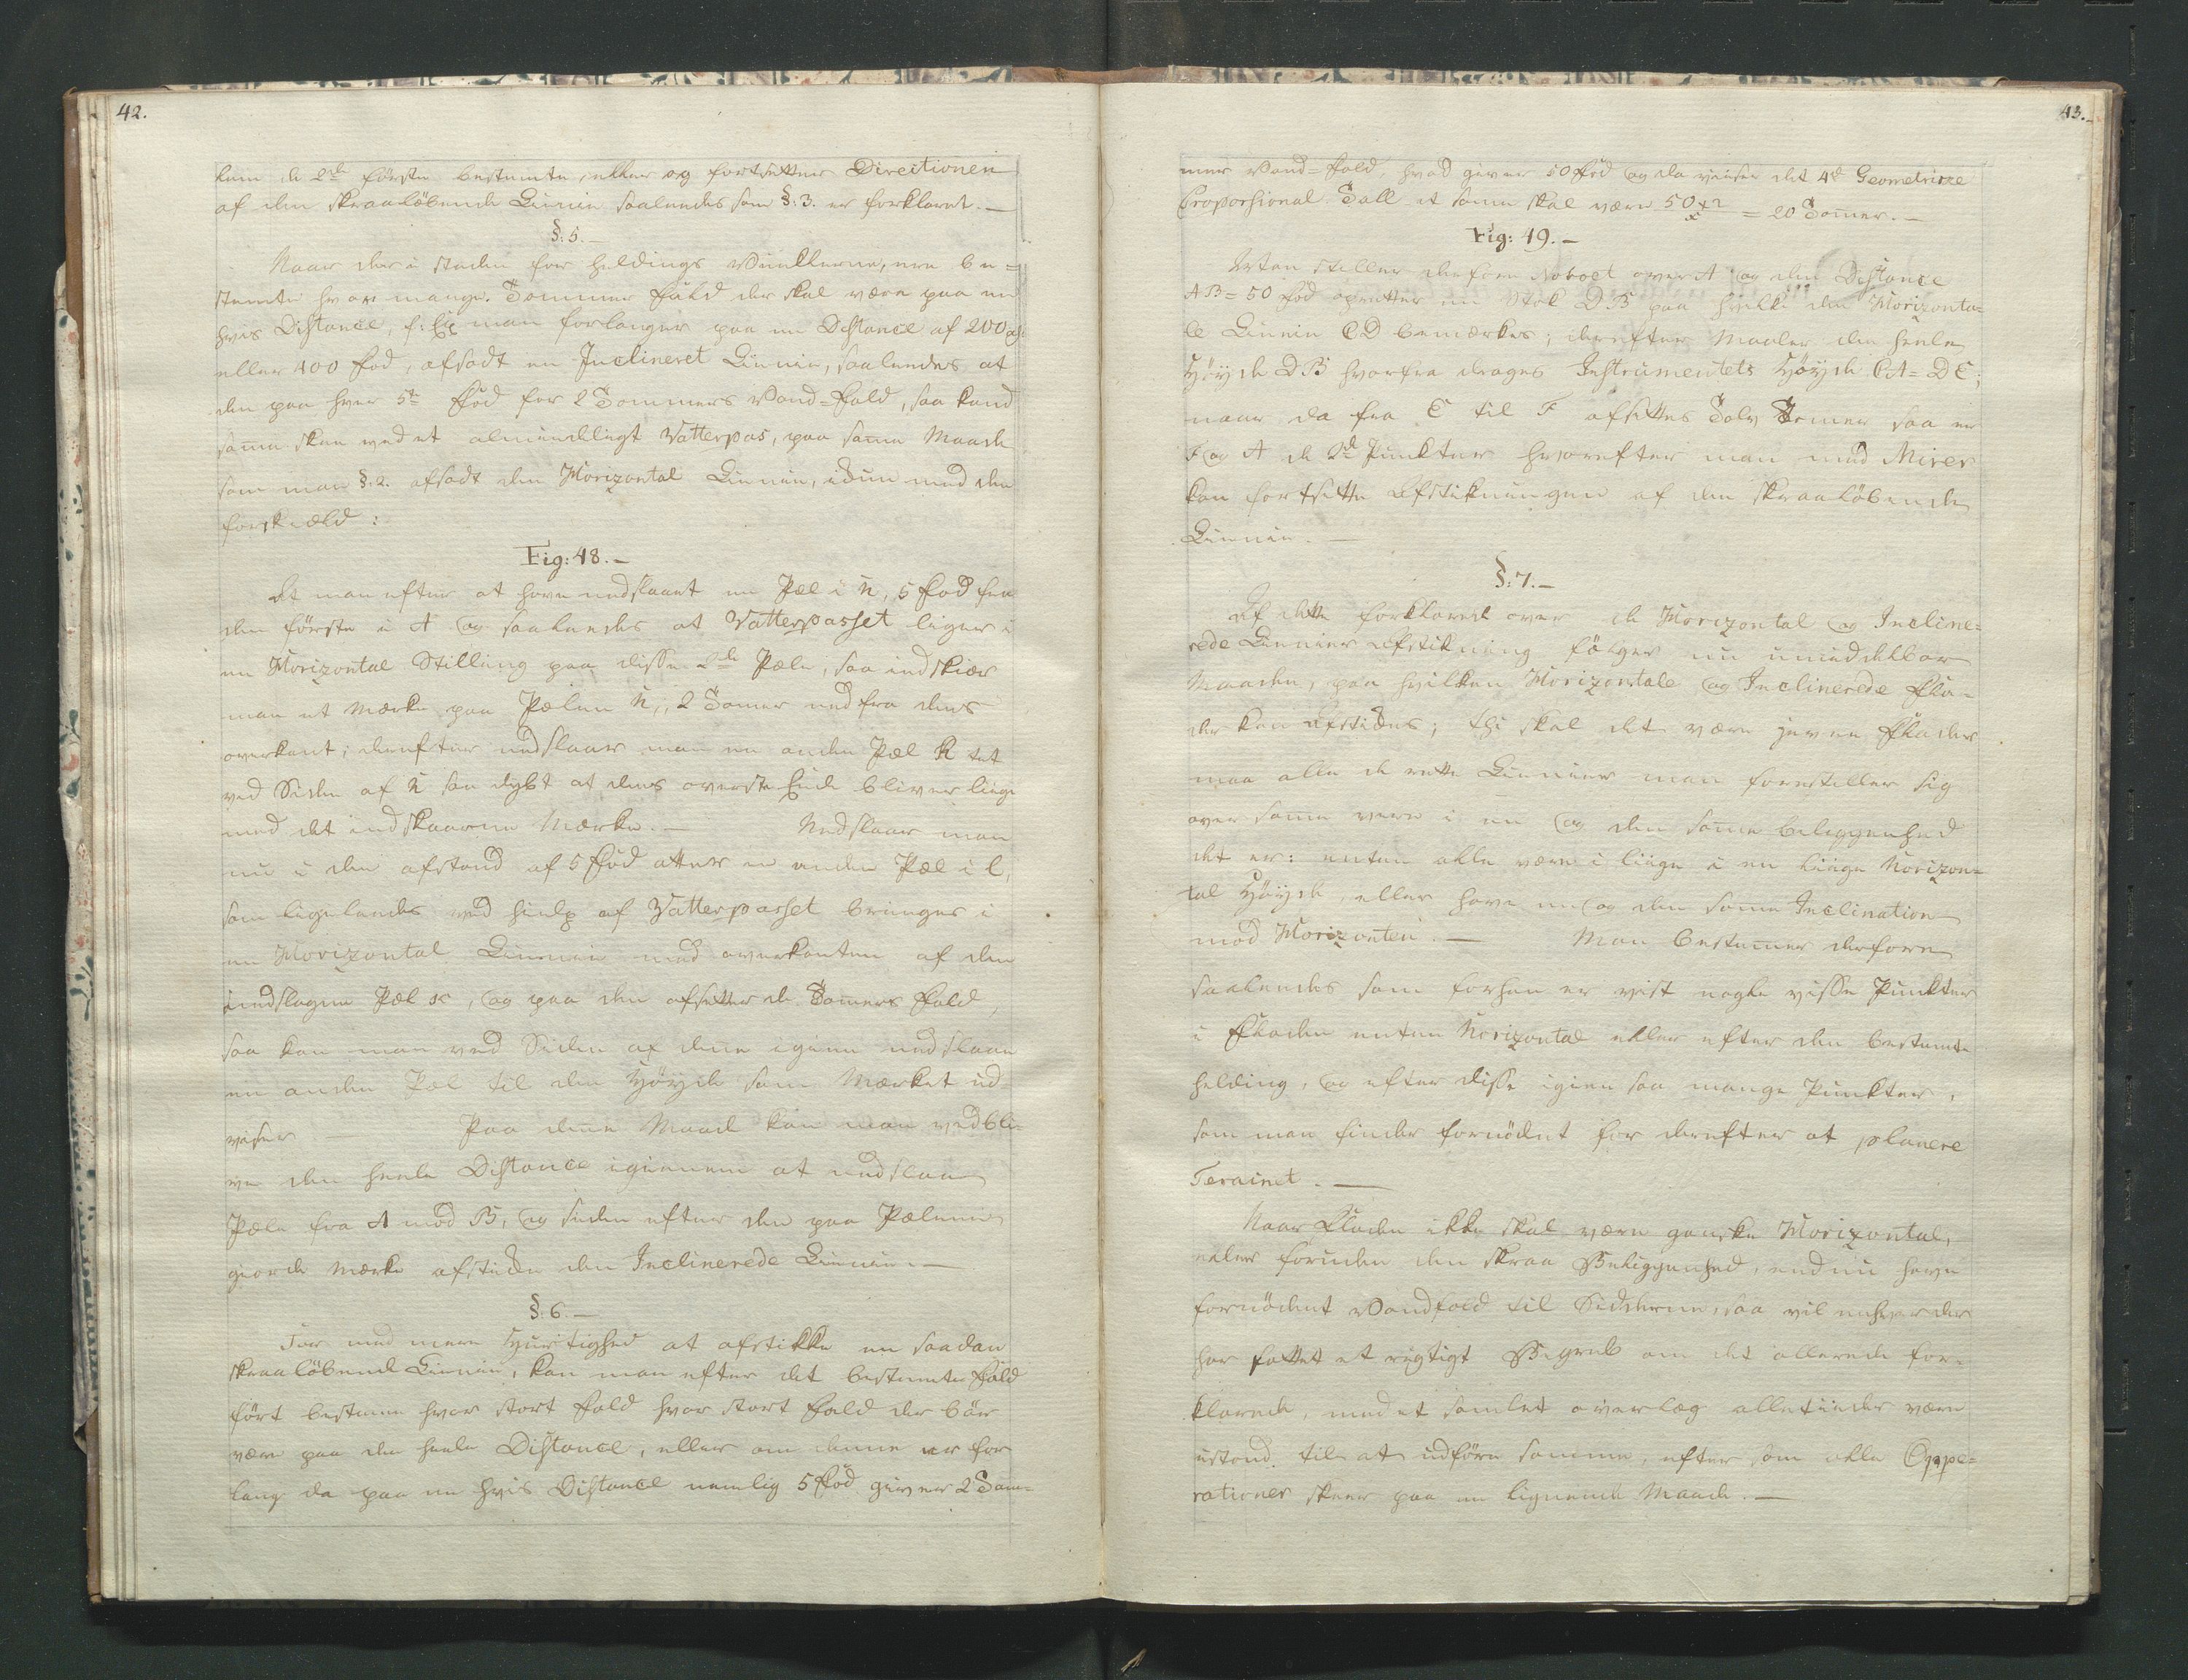 42.
kun de 2de første bestemte, eller og fortsetter Directionen
af den skraaløbende Linnie saaledes som §: 3. er forklaret. —
§: 5. —
Naar der i steden for heldings Vinklerne, ere be=
stemte hvor mange Tommer Fald der skal være paa en
hvis Distance, f: Ex man forlanger paa en Distance af 200
eller 400 fod, afsadt en Inclineret Linnie, saaledes at
den paa hver 5te Fod har 2 Tommers Vand=Fald, saa kand
same skee ved et almindeligt Vatterpas, paa same Maade
som man §. 2. afsadt den Horizontal Linnie, idun med den
forskiæld:
Fig: 48. —
At man efter at have nedslaaet en Pæl i n, 5 Fod fra
den første i A og saaledes at Vatterpasset ligger i
en Horizontal Stilling paa disse 2de Pæle, saa indskiær
man et Mærke paa Pælen n, 2 Tomer ned fra dens
overkant; derefter nedslaar man en anden Pæl k tet
ved Siden af n saa dybt at dens øverste Ende bliver liige
med det indskaarne Mærke. — Nedslaar man
nu i den afstand af 5 Fod atter en anden Pæl i l,
som ligeledes ved hielp af Vatterpasset bringes i
en Horizontal Linnie med overkanten af den
indslagne Pæl k, og paa den afsetter de Tomers Fald,
saa kan man ved Siden af dene igien nedslaae
en anden Pæl til den Høyde som Mærket ud=
viser — Paa dene Maade kan man vedbli=
ve den heele Distance igiennem at nedslaae
Pæle fra A mod B, og siden efter den paa Pælene
giorde Mærke afstikke den Inclinerede Linnie. —
§: 6. —
For med mere Hurtighed at afstikke en saadan
skraaløbende Linnie, kan man efter det bestemte Fald
først bestemme hvor stort Fald hvor stort Fald der bør
være paa den heele Distance, eller om denne er for
lang da paa en hvis Distance nemlig 5 Fod giver 2 Tom=
43.
mer Vand=Fald, hvad giver 50 Fod og da viiser det 4de Geometriske
Proporsional Tall at same skal være 50×2 = 20 Tommer. —
Fig: 49. —
Man stiller derfore Roboet over A og den Distance
AB = 50 fod opretter en Stok DB paa hvilke den Horizonta=
le Linnie CD bemærkes; derefter Maaler den heele
Høyde DB hvorfra drages Instrumentets Høyde CA = DE;
naar da fra E til F afsettes Tolv Tomer saa er
F og A de 2de Punkter hvorefter man med Mirer
kan fortsette Afstikningen af den skraaløbende
Linnie. —
§: 7. —
Af dette forklarede over de Horizontal og Incline=
rede Linnier Afstikning følger nu umiddelbar
Maaden, paa hvilken Horizontale og Inclinerede Fla=
der kan afstikkes; thi skal det være jevne Flader
maa alle de rette Linnier man forestiller sig
over same være i en og den same beliggenhed
det er: enten alle være i liige i en liige Horizon=
tal Høyde, eller have en og den same Inclination
mod Horizonten. — Man bestemer derfore
saaledes som forhen er vist nogle visse Punkter
i Fladen enten Horizontal eller efter den bestemte
helding, og efter disse igien saa mange Punkter,
som man finder fornødet for derefter at planere
Terainet. —
Naar Fladen ikke skal være ganske Horizontal,
eller foruden den skraa Beliggenhed, endnu have
fornødent Vandfald til Siderne, saa vil enhver der
har fattet et rigtigt Begreb om det allerede for=
klarede, med et samlet overlæg alletider være
istand til at udføre samme, efter som alle Oppe=
rationer skeer paa en lignende Maade. —